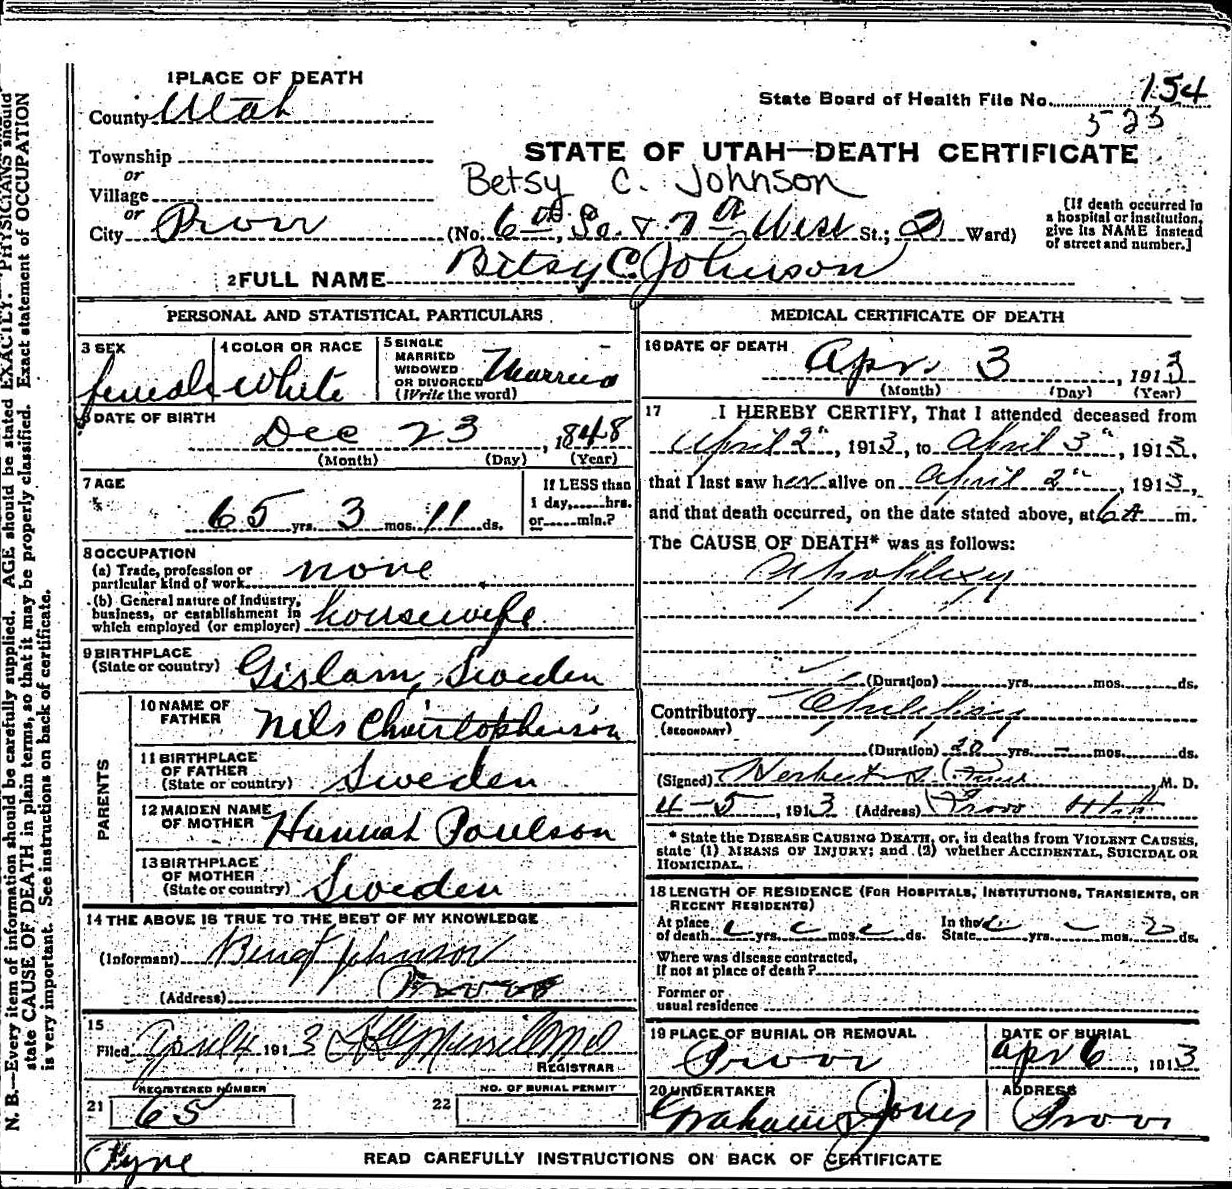 1 PLACE OF DEATH
County Utah
State Board of Health File No. 154
523
Township
or
Village
or
City Provo
STATE OF UTAH—DEATH CERTIFICATE
Betsy C. Johnson
(No. 6th So. & 7th West St.; 2 Ward)
[If death occurred in
a hospital or institution,
give its NAME instead
of street and number.]
2 FULL NAME Betsy C. Johnson
PERSONAL AND STATISTICAL PARTICULARS
3 SEX female
4 COLOR OR RACE White
5 SINGLE
MARRIED
WIDOWED
OR DIVORCED
(Write the word) Married
6 DATE OF BIRTH
Dec 23, 1848
(Month) (Day) (Year)
7 AGE
65 yrs. 3 mos. 11 ds.
If LESS than
1 day, hrs.
or min.?
8 OCCUPATION
(a) Trade, profession or
particular kind of work none
(b) General nature of industry,
business, or establishment in
which employed (or employer) housewife
9 BIRTHPLACE
(State or country) Gislam, Sweden
PARENTS
10 NAME OF
FATHER Nils Christopherson
11 BIRTHPLACE
OF FATHER
(State or country) Sweden
12 MAIDEN NAME
OF MOTHER Hannah Poulson
13 BIRTHPLACE
OF MOTHER
(State or country) Sweden
14 THE ABOVE IS TRUE TO THE BEST OF MY KNOWLEDGE
(Informant) Bengt Johnson
(Address) Provo
15
Filed April 4 1913 Merrill MD
REGISTRAR
REGISTERED NUMBER
21 65
NO. OF BURIAL PERMIT
22
MEDICAL CERTIFICATE OF DEATH
16 DATE OF DEATH
Apr. 3, 1913
(Month) (Day) (Year)
17 I HEREBY CERTIFY, That I attended deceased from
April 2", 1913, to April 3", 1913,
that I last saw her alive on April 2", 1913,
and that death occurred, on the date stated above, at 6 A m.
The CAUSE OF DEATH* was as follows:
Apoplexy
(Duration) yrs. mos. ds.
Contributory Epilepsy
(SECONDARY)
(Duration) 20 yrs. – mos. ds.
(Signed) Herbert S. M. D.
4-5, 1913 (Address) Provo Utah
* State the DISEASE CAUSING DEATH, or, in deaths from VIOLENT CAUSES,
state (1) MEANS OF INJURY; and (2) whether ACCIDENTAL, SUICIDAL OR
HOMICIDAL.
18 LENGTH OF RESIDENCE (FOR HOSPITALS, INSTITUTIONS, TRANSIENTS, OR
RECENT RESIDENTS)
At place
of death yrs. mos. ds. In the
State yrs. mos. ds.
Where was disease contracted,
If not at place of death?
Former or
usual residence
19 PLACE OF BURIAL OR REMOVAL
Provo
DATE OF BURIAL
Apr 6, 1913
20 UNDERTAKER
Graham & Jones
ADDRESS
Provo
READ CAREFULLY INSTRUCTIONS ON BACK OF CERTIFICATE
N. B.—Every item of information should be carefully supplied. AGE should be stated EXACTLY. PHYSICIANS should
state CAUSE OF DEATH in plain terms, so that it may be properly classified. Exact statement of OCCUPATION
is very important. See instructions on back of certificate.